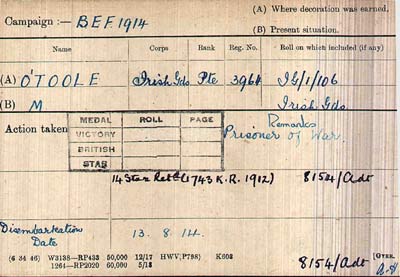 (A) Where decoration was earned.
Campaign :— B E F 1914
(B) Present situation.
Name Corps Rank Reg. No. Roll on which included (if any)
(A) O'TOOLE Irish Gds Pte 3961 IG/1/106
(B) M Irish Gds.
Action taken
MEDAL ROLL PAGE
VICTORY
BRITISH
STAR
Remarks
Prisoner of War.
14 Star Ret (1743 K.R. 1912) 8154/Adt
Disembarkation
Date 13. 8. 14.
(6 34 46) W3138—RP433 50,000 12/17 HWV(P798) K608
1264—RP2020 60,000 5/18
8154/Adt